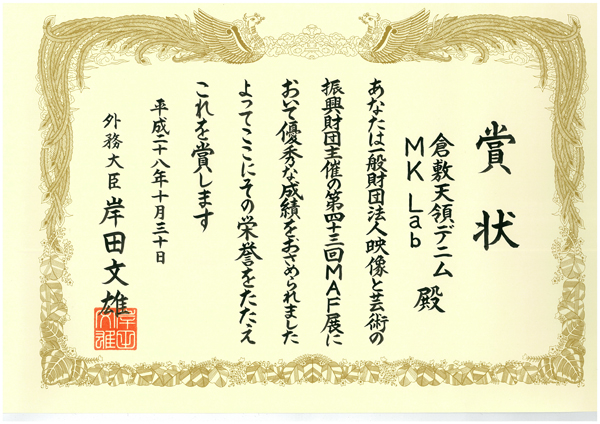 賞状
倉敷天領デニム
MK Lab 殿
あなたは一般財団法人映像と芸術の
振興財団主催の第四十三回MAF展に
おいて優秀な成績をおさめられました
よってここにその栄誉をたたえ
これを賞します
平成二十八年十月三十日
外務大臣 岸田文雄